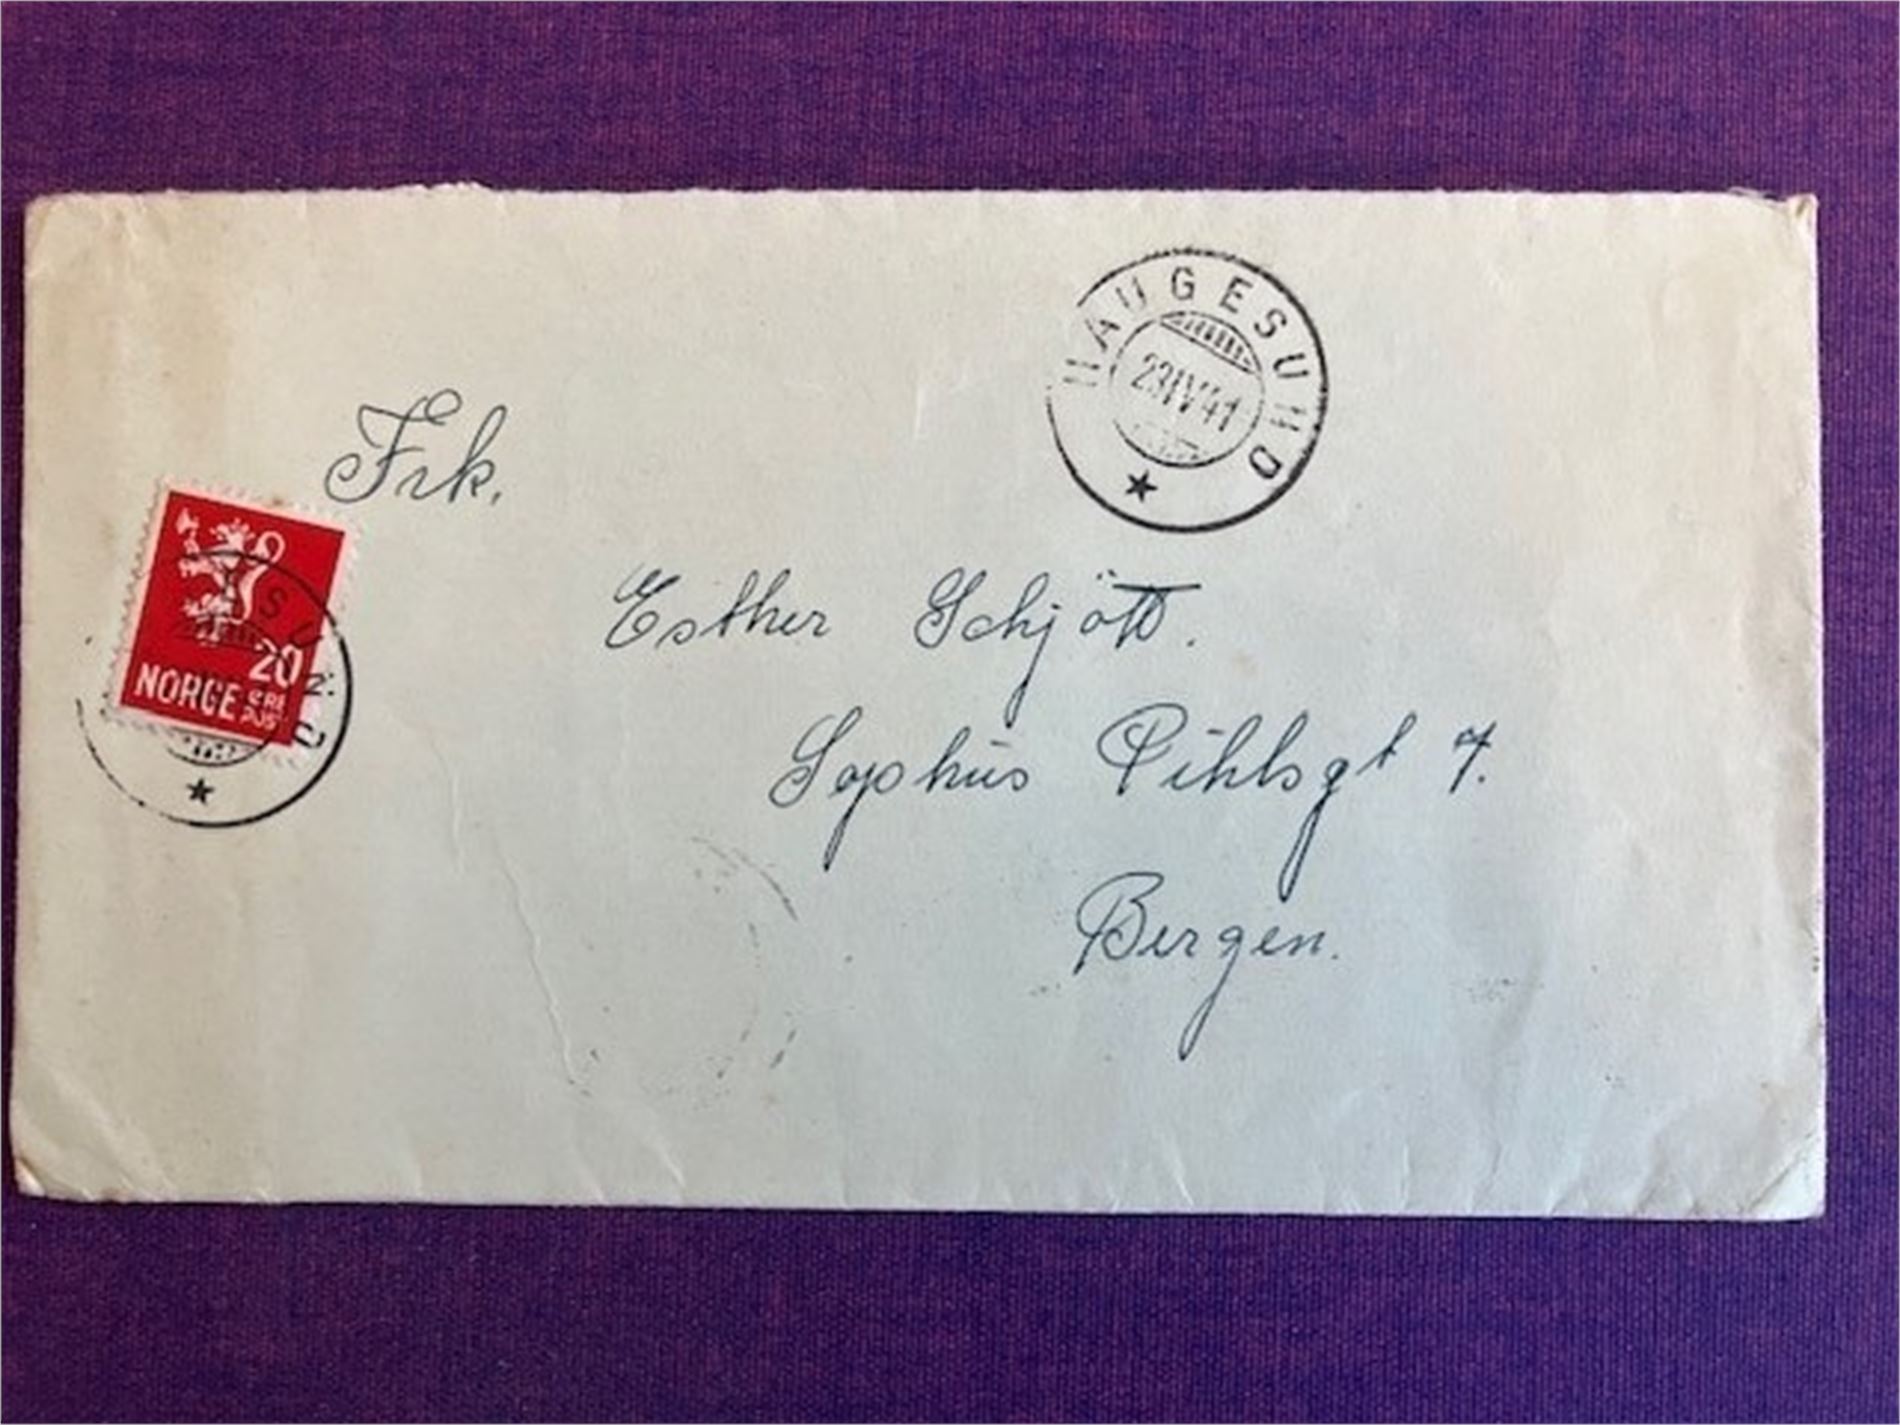 HAUGESUND
23IV41
Frk.
20
NORGE ØRE
POST
Esther Schjött.
Sophus Pihlsgt 7.
Bergen.